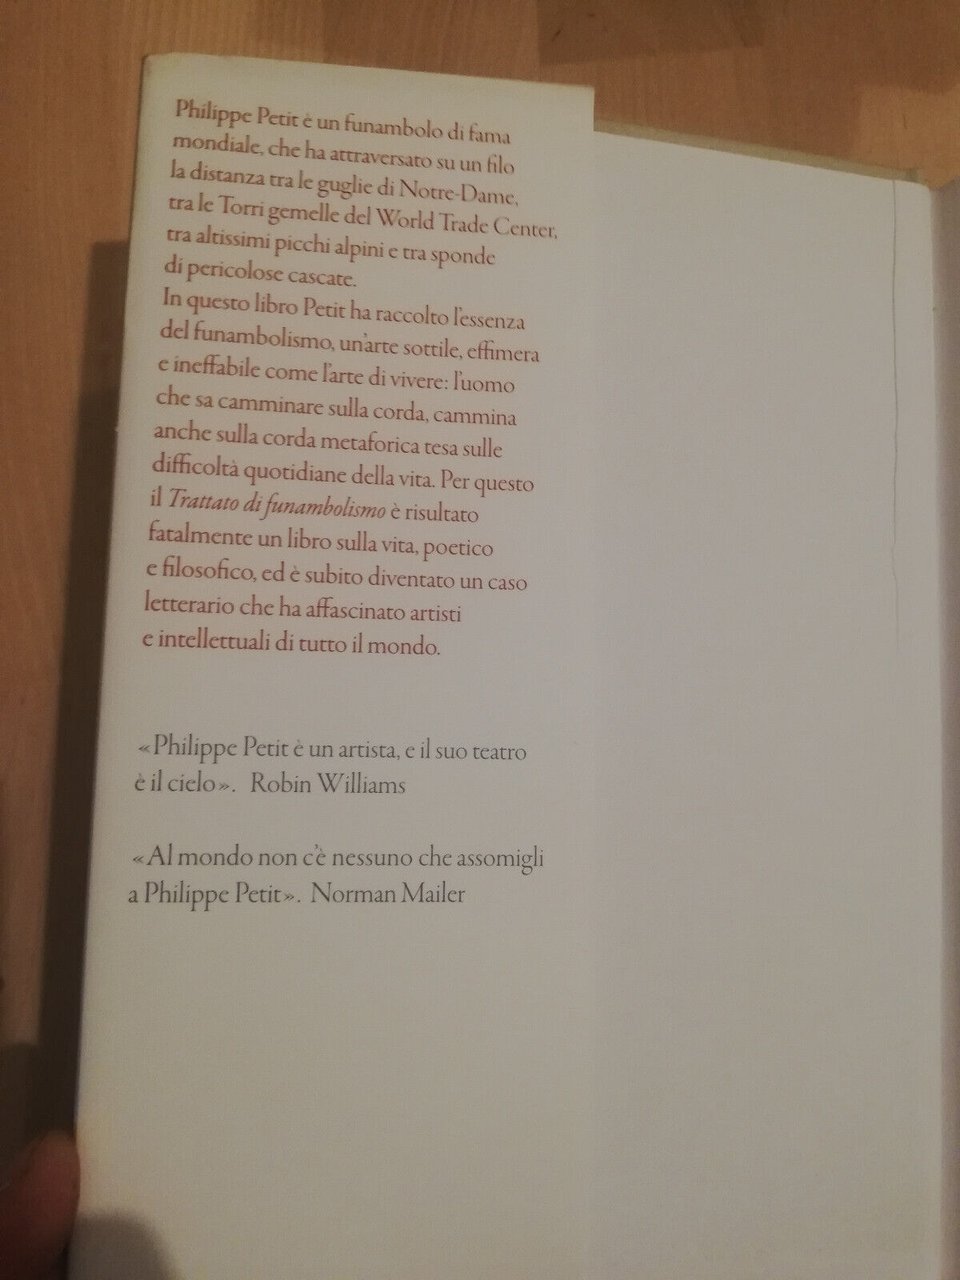 Philippe Petit è un funambolo di fama
mondiale, che ha attraversato su un filo
la distanza tra le guglie di Notre-Dame,
tra le Torri gemelle del World Trade Center,
tra altissimi picchi alpini e tra sponde
di pericolose cascate.
In questo libro Petit ha raccolto l'essenza
del funambolismo, un'arte sottile, effimera
e ineffabile come l'arte di vivere: l'uomo
che sa camminare sulla corda, cammina
anche sulla corda metaforica tesa sulle
difficoltà quotidiane della vita. Per questo
il Trattato di funambolismo è risultato
fatalmente un libro sulla vita, poetico
e filosofico, ed è subito diventato un caso
letterario che ha affascinato artisti
e intellettuali di tutto il mondo.
«Philippe Petit è un artista, e il suo teatro
è il cielo». Robin Williams
«Al mondo non c'è nessuno che assomigli
a Philippe Petit». Norman Mailer